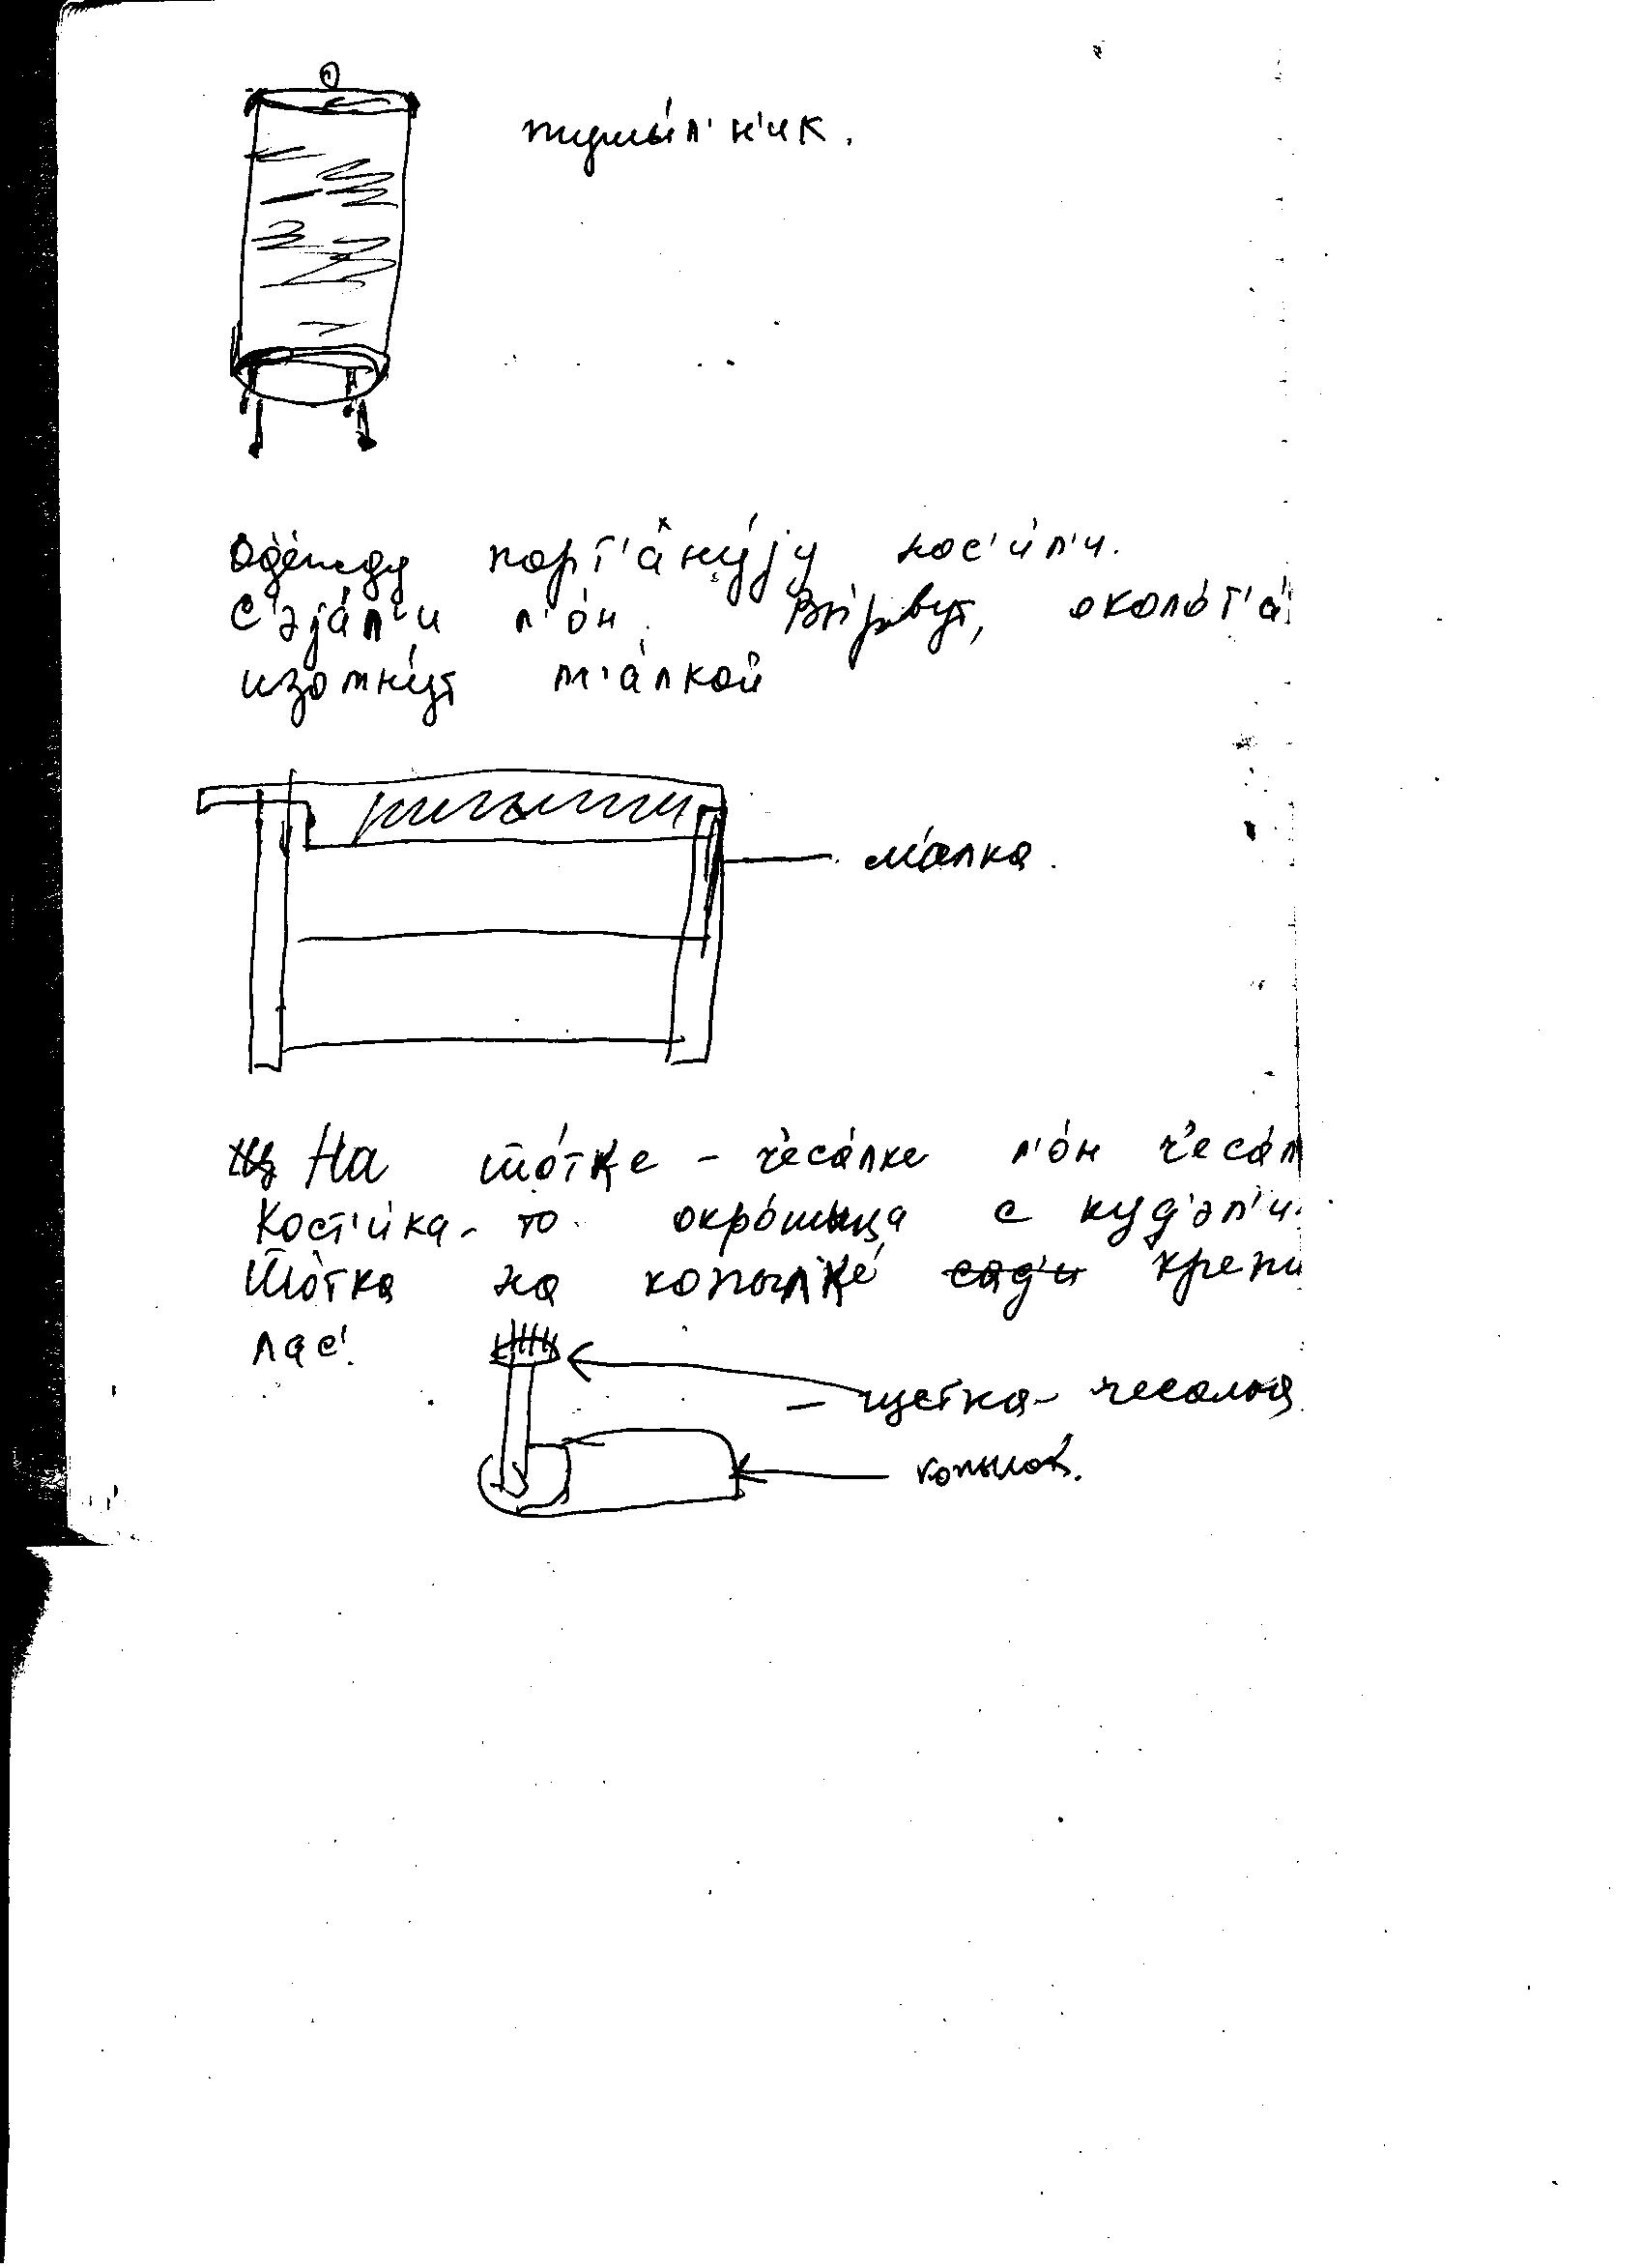 тушы́л'н'ик.
Оде́жду порт'ану́jу нос'и́л'и.
С'эjа́л'и л'о́н. Вы́рвут, около́т'а
изомну́т м'а́лкой
м'а́лка.
На шо́тке - чеса́лке л'о́н чеса́л
Кост'и́ка - то окро́шыца с куд'э́л'и.
Шо́тка на копылке́ сад'и крепи
лас'.
- щетка - чесалка
копыло́к.